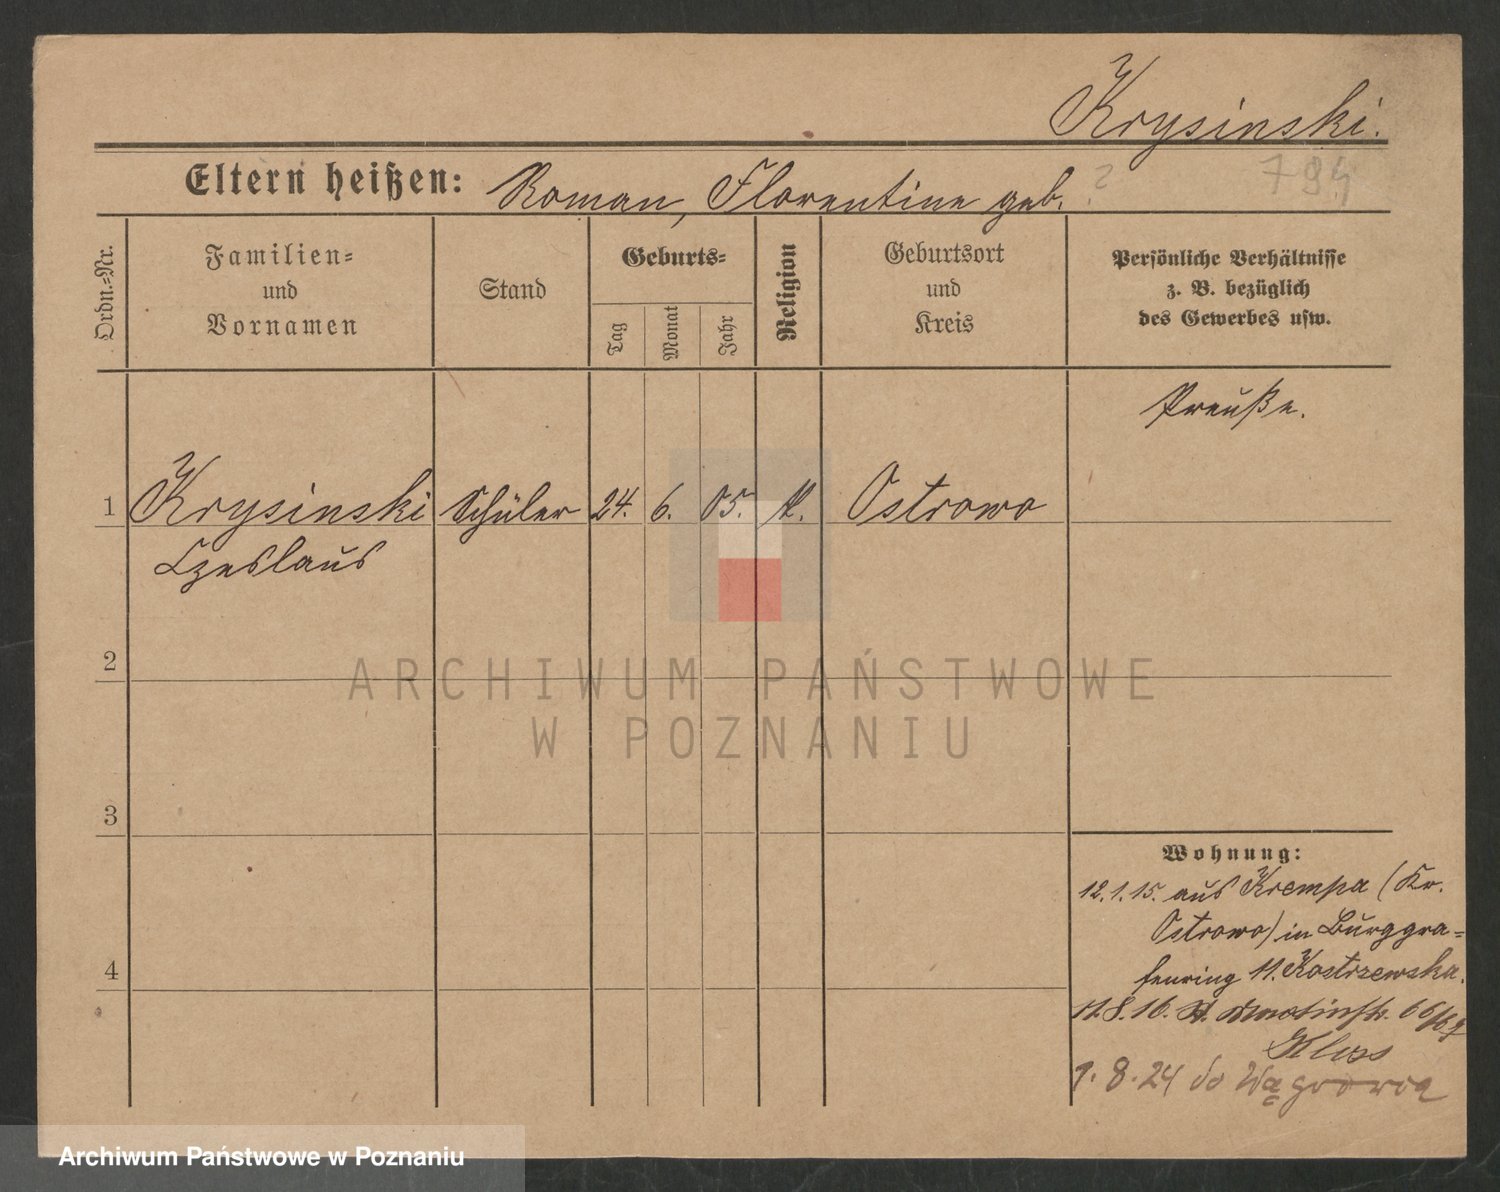 Krysinski.
794
Eltern heißen: Roman, Florentine geb. ?
Ordn.-Nr.
Familien-
und
Vornamen
Stand
Geburts-
Tag
Monat
Jahr
Religion
Geburtsort
und
Kreis
Persönliche Verhältnisse
z. B. bezüglich
des Gewerbes usw.
Preuße.
1 Krysinski Schüler 24. 6. 05. k. Ostrowo
Czeslaus
2
3
4
Wohnung:
12.1.15. aus Krempa (Kr.
Ostrowo) in Burggra-
fenring 11. Kostrzewska.
11.8.16. St. Martinstr. 66/67
Kloss
9.8.24 do Wągrowca
ARCHIWUM PAŃSTWOWE
W POZNANIU
Archiwum Państwowe w Poznaniu